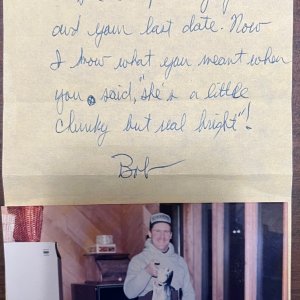 and your last date. Now
I know what you meant when
you said, "she's a little
chunky but real bright"!
Bob